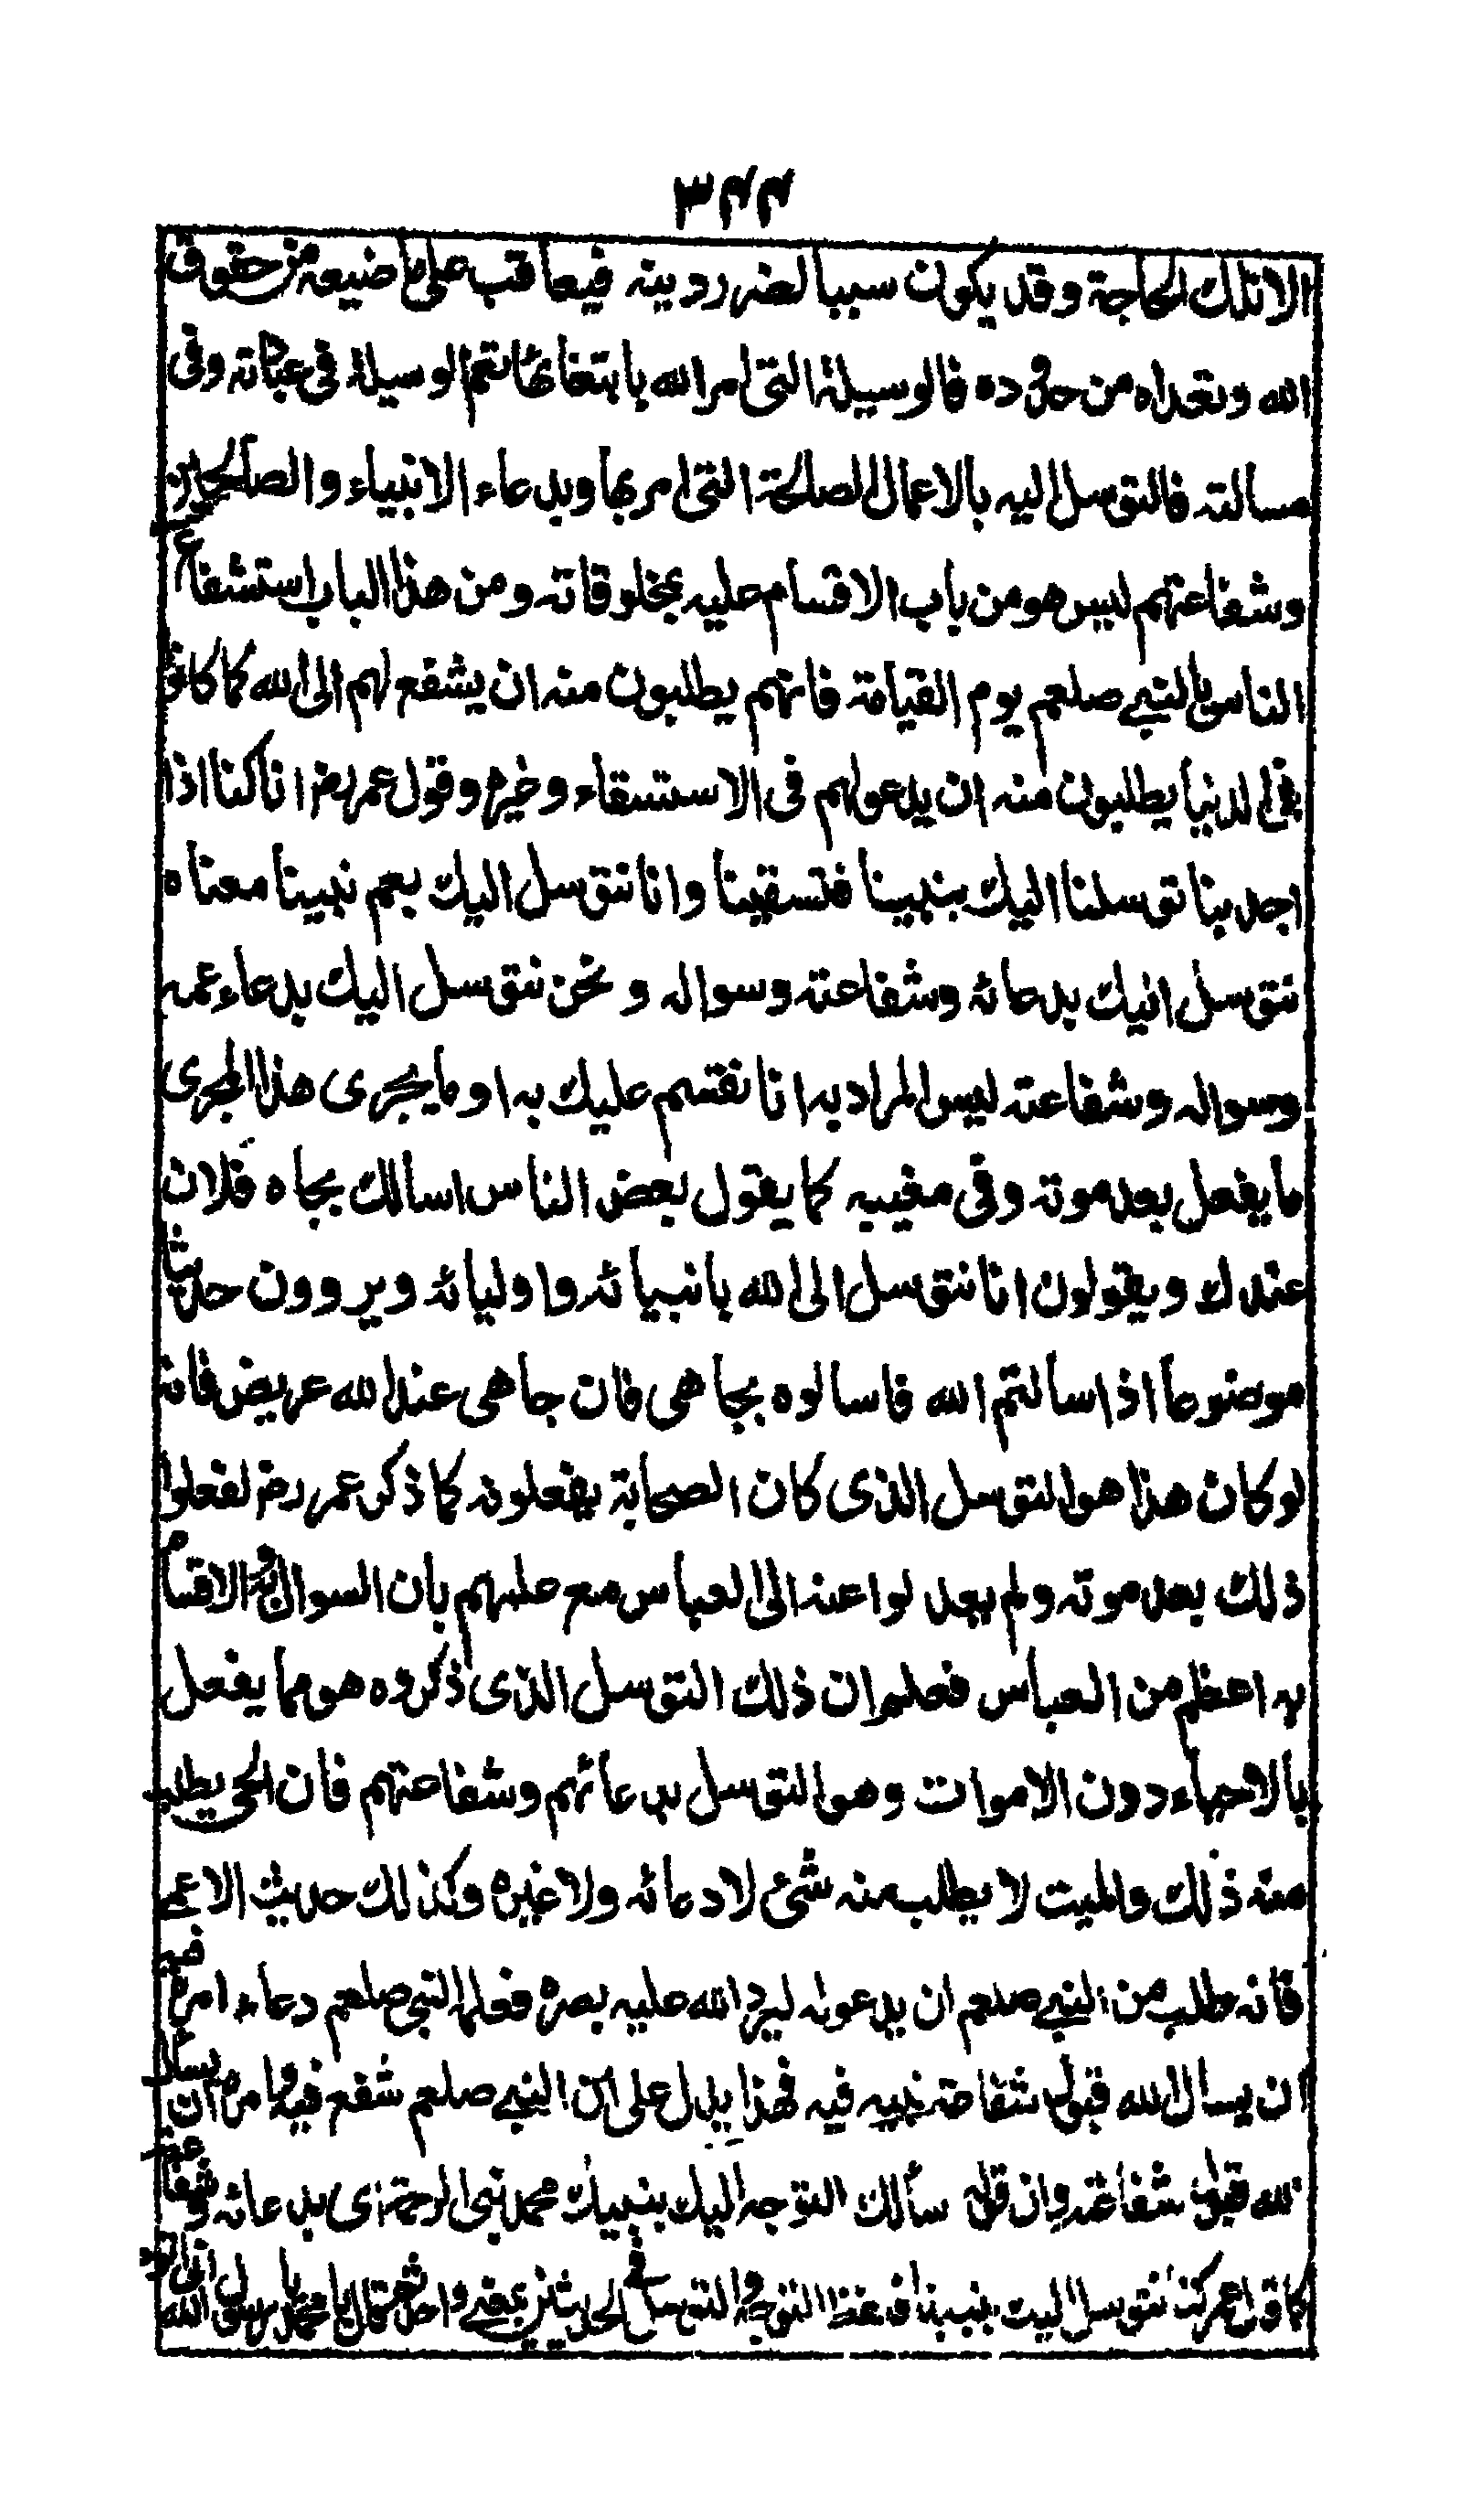 ٣٤٤
الا تلك الحاجة وقد يكون سببا لضرر دينه فيعاقب على ما ضيعه من حقوق
الله وتعداه من حدوده فالوسيلة التي امر الله بابتغائها تعم الوسيلة في عبادته وفي
مسالته فالتوسل اليه بالاعمال الصالحة التي امر بها وبدعاء الانبياء والصالحين
وشفاعتهم ليس هو من باب الاقسام عليه بمخلوقاته ومن هذا الباب استشفاع
الناس بالنبي صلعم يوم القيامة فانهم يطلبون منه ان يشفع لهم الى الله كما كانوا
في الدنيا يطلبون منه ان يدعو لهم في الاستسقاء وغيره وقول عمر رض انا كنا اذا
اجدبنا توسلنا اليك بنبينا فتسقينا وانا نتوسل اليك بعم نبينا معناه
نتوسل اليك بدعائه وشفاعته وسواله ونحن نتوسل اليك بدعاء عمه
وسواله وشفاعته ليس المراد به انا نقسم عليك به او ما يجرى هذا المجرى
ما يفعل بعد موته وفي مغيبه كما يقول بعض الناس اسالك بجاه فلان
عندك ويقولون انا نتوسل الى الله بانبيائه واوليائه ويروون حديثا
موضوعا اذا سالتم الله فاسالوه بجاهى فان جاهى عند الله عريض فانه
لو كان هذا هو التوسل الذى كان الصحابة يفعلونه كما ذكر عمر رض لفعلوا
ذلك بعد موته ولم يعدلوا عنه الى العباس مع علمهم بان السوال به والاقسام
به اعظم من العباس فعلم ان ذلك التوسل الذى ذكروه هو مما يفعل
بالاحياء دون الاموات وهو التوسل بدعائهم وشفاعتهم فان الحي يطلب
منه ذلك والميت لا يطلب منه شئ لا دعائه ولا غيره وكذلك حديث الاعمى
فانه طلب من النبي صلعم ان يدعو له ليرد الله عليه بصره فعلمه النبي صلعم دعاء امره فيه
ان يسال الله قبول شفاعة نبيه فيه فهذا يدل على ان النبي صلعم شفع فيه وامره ان يسال
الله قبول شفاعته وان قوله سألك اتوجه اليك بنبيك محمد نبي الرحمة اى بدعائه وشفاعته
كما قال عمر كنا نتوسل اليك بنبينا فلفظ التوجه والتوسل في الحديثين بمعنى واحد ثم قال يا محمد يا رسول الله